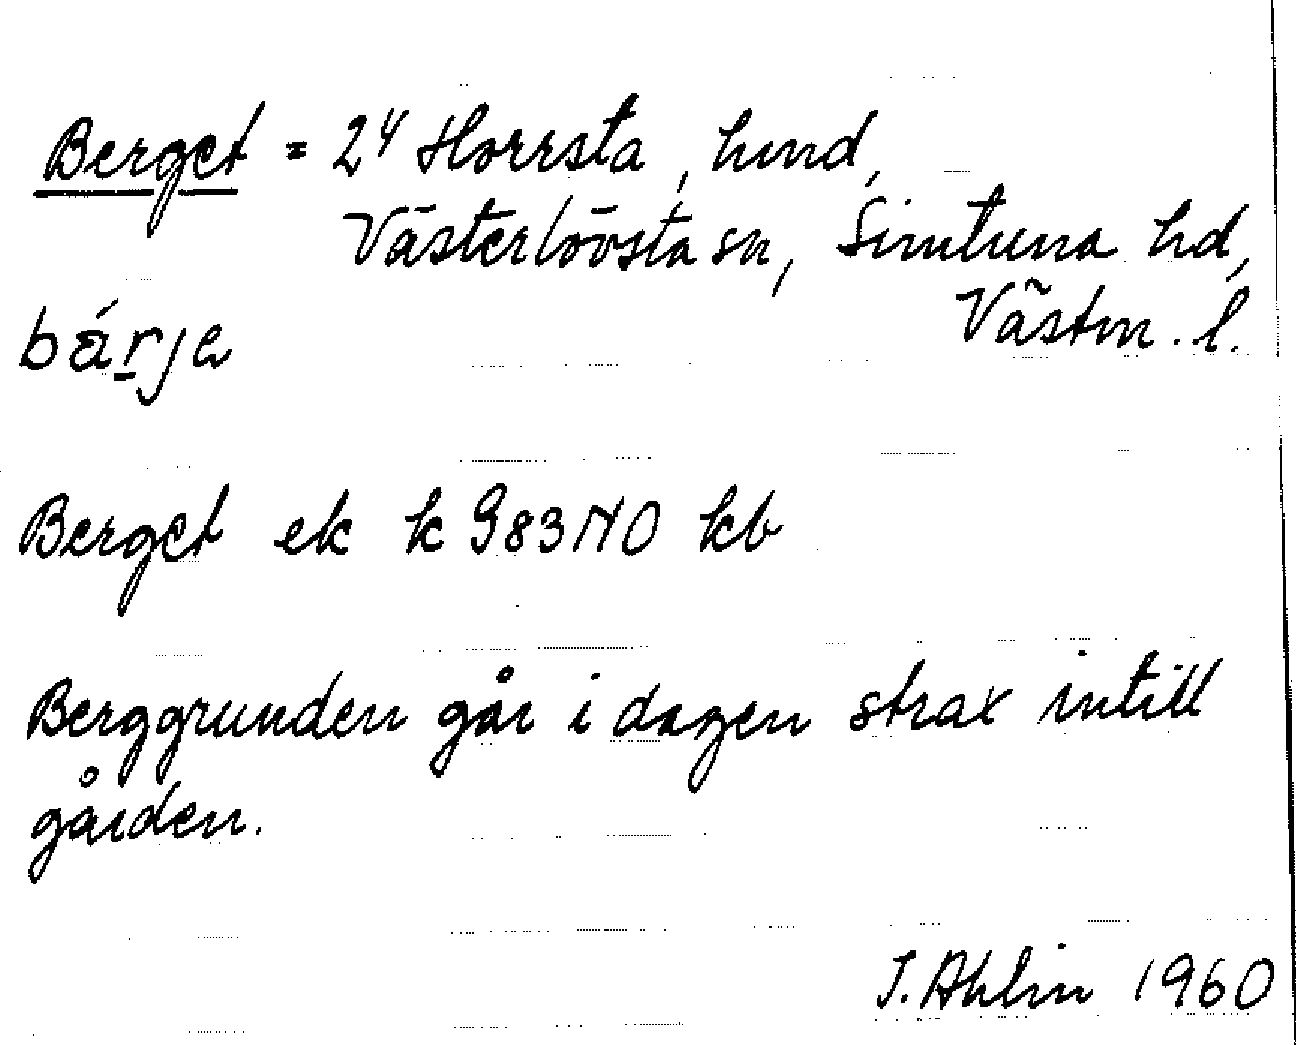 Berget = 2⁴ Horrsta, hmd,
Västerlövsta sn, Simtuna hd,
Västm. l.
bärje
Berget ek k 983 NO kb
Berggrunden går i dagen strax intill
gården.
I. Ahlin 1960